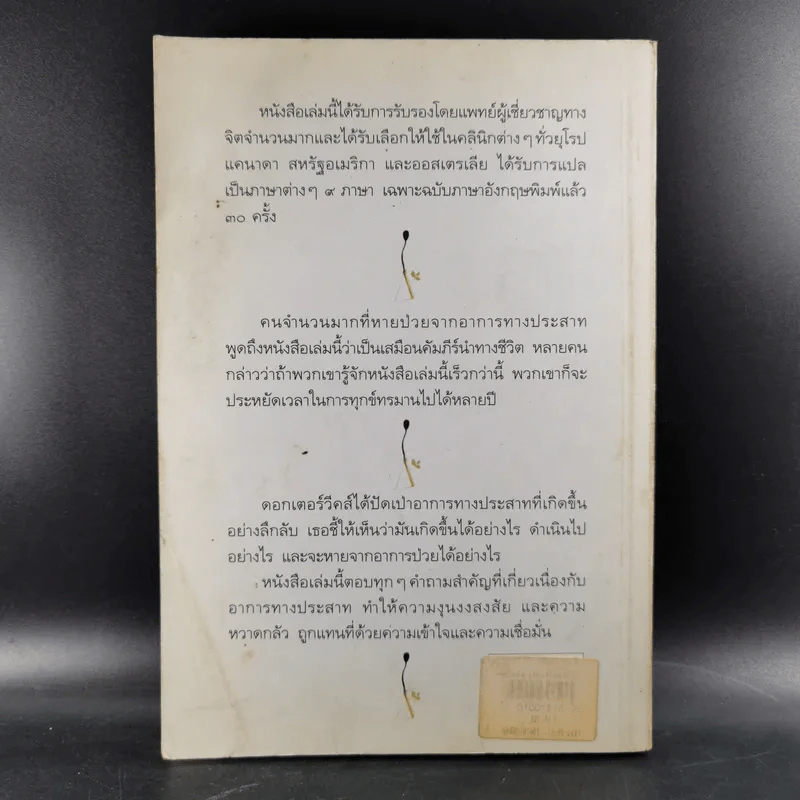 หนังสือเล่มนี้ได้รับการรับรองโดยแพทย์ผู้เชี่ยวชาญทาง
จิตจำนวนมากและได้รับเลือกให้ใช้ในคลินิกต่าง ๆ ทั่วยุโรป
แคนาดา สหรัฐอเมริกา และออสเตรเลีย ได้รับการแปล
เป็นภาษาต่าง ๆ ๙ ภาษา เฉพาะฉบับภาษาอังกฤษพิมพ์แล้ว
๓๐ ครั้ง
คนจำนวนมากที่หายป่วยจากอาการทางประสาท
พูดถึงหนังสือเล่มนี้ว่าเป็นเสมือนคัมภีร์นำทางชีวิต หลายคน
กล่าวว่าถ้าพวกเขารู้จักหนังสือเล่มนี้เร็วกว่านี้ พวกเขาก็จะ
ประหยัดเวลาในการทุกข์ทรมานไปได้หลายปี
ดอกเตอร์วีคส์ได้ปัดเป่าอาการทางประสาทที่เกิดขึ้น
อย่างลึกลับ เธอชี้ให้เห็นว่ามันเกิดขึ้นได้อย่างไร ดำเนินไป
อย่างไร และจะหายจากอาการป่วยได้อย่างไร
หนังสือเล่มนี้ตอบทุก ๆ คำถามสำคัญที่เกี่ยวเนื่องกับ
อาการทางประสาท ทำให้ความงุนงงสงสัย และความ
หวาดกลัว ถูกแทนที่ด้วยความเข้าใจและความเชื่อมั่น